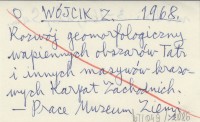 WÓJCIK Z. - 1968.
Rozwój geomorfologiczny
wapiennych obszarów Tatr
i innych masywów kraso-
wych Karpat Zachodnich.
- Prace Muzeum Ziemi